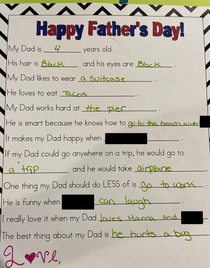 Happy Father's Day!
My Dad is 4 years old.
His hair is Black and his eyes are Black.
My Dad likes to wear a suitcase.
He loves to eat Tacos
My Dad works hard at the pier
He is smart because he knows how to go to the beach with
It makes my Dad happy when
If my Dad could go anywhere on a trip, he would go to
a trip and he would take airplane
One thing my Dad should do LESS of is go to work.
He is funny when can laugh
I really love it when my Dad loves Mama and
The best thing about my Dad is he hurts a bug
Love,